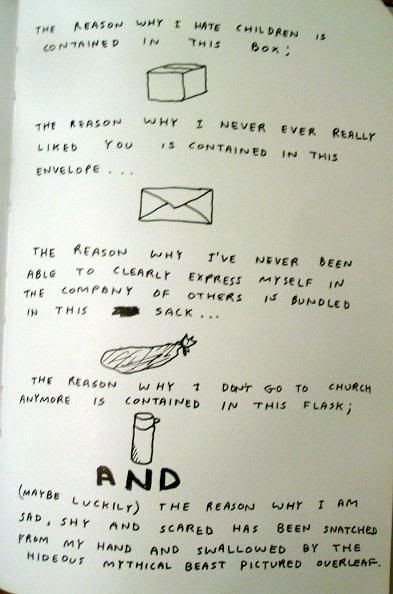 THE REASON WHY I HATE CHILDREN IS
CONTAINED IN THIS BOX;
THE REASON WHY I NEVER EVER REALLY
LIKED YOU IS CONTAINED IN THIS
ENVELOPE...
THE REASON WHY I'VE NEVER BEEN
ABLE TO CLEARLY EXPRESS MYSELF IN
THE COMPANY OF OTHERS IS BUNDLED
IN THIS SACK...
THE REASON WHY I DON'T GO TO CHURCH
ANYMORE IS CONTAINED IN THIS FLASK;
AND
(MAYBE LUCKILY) THE REASON WHY I AM
SAD, SHY AND SCARED HAS BEEN SNATCHED
FROM MY HAND AND SWALLOWED BY THE
HIDEOUS MYTHICAL BEAST PICTURED OVERLEAF.